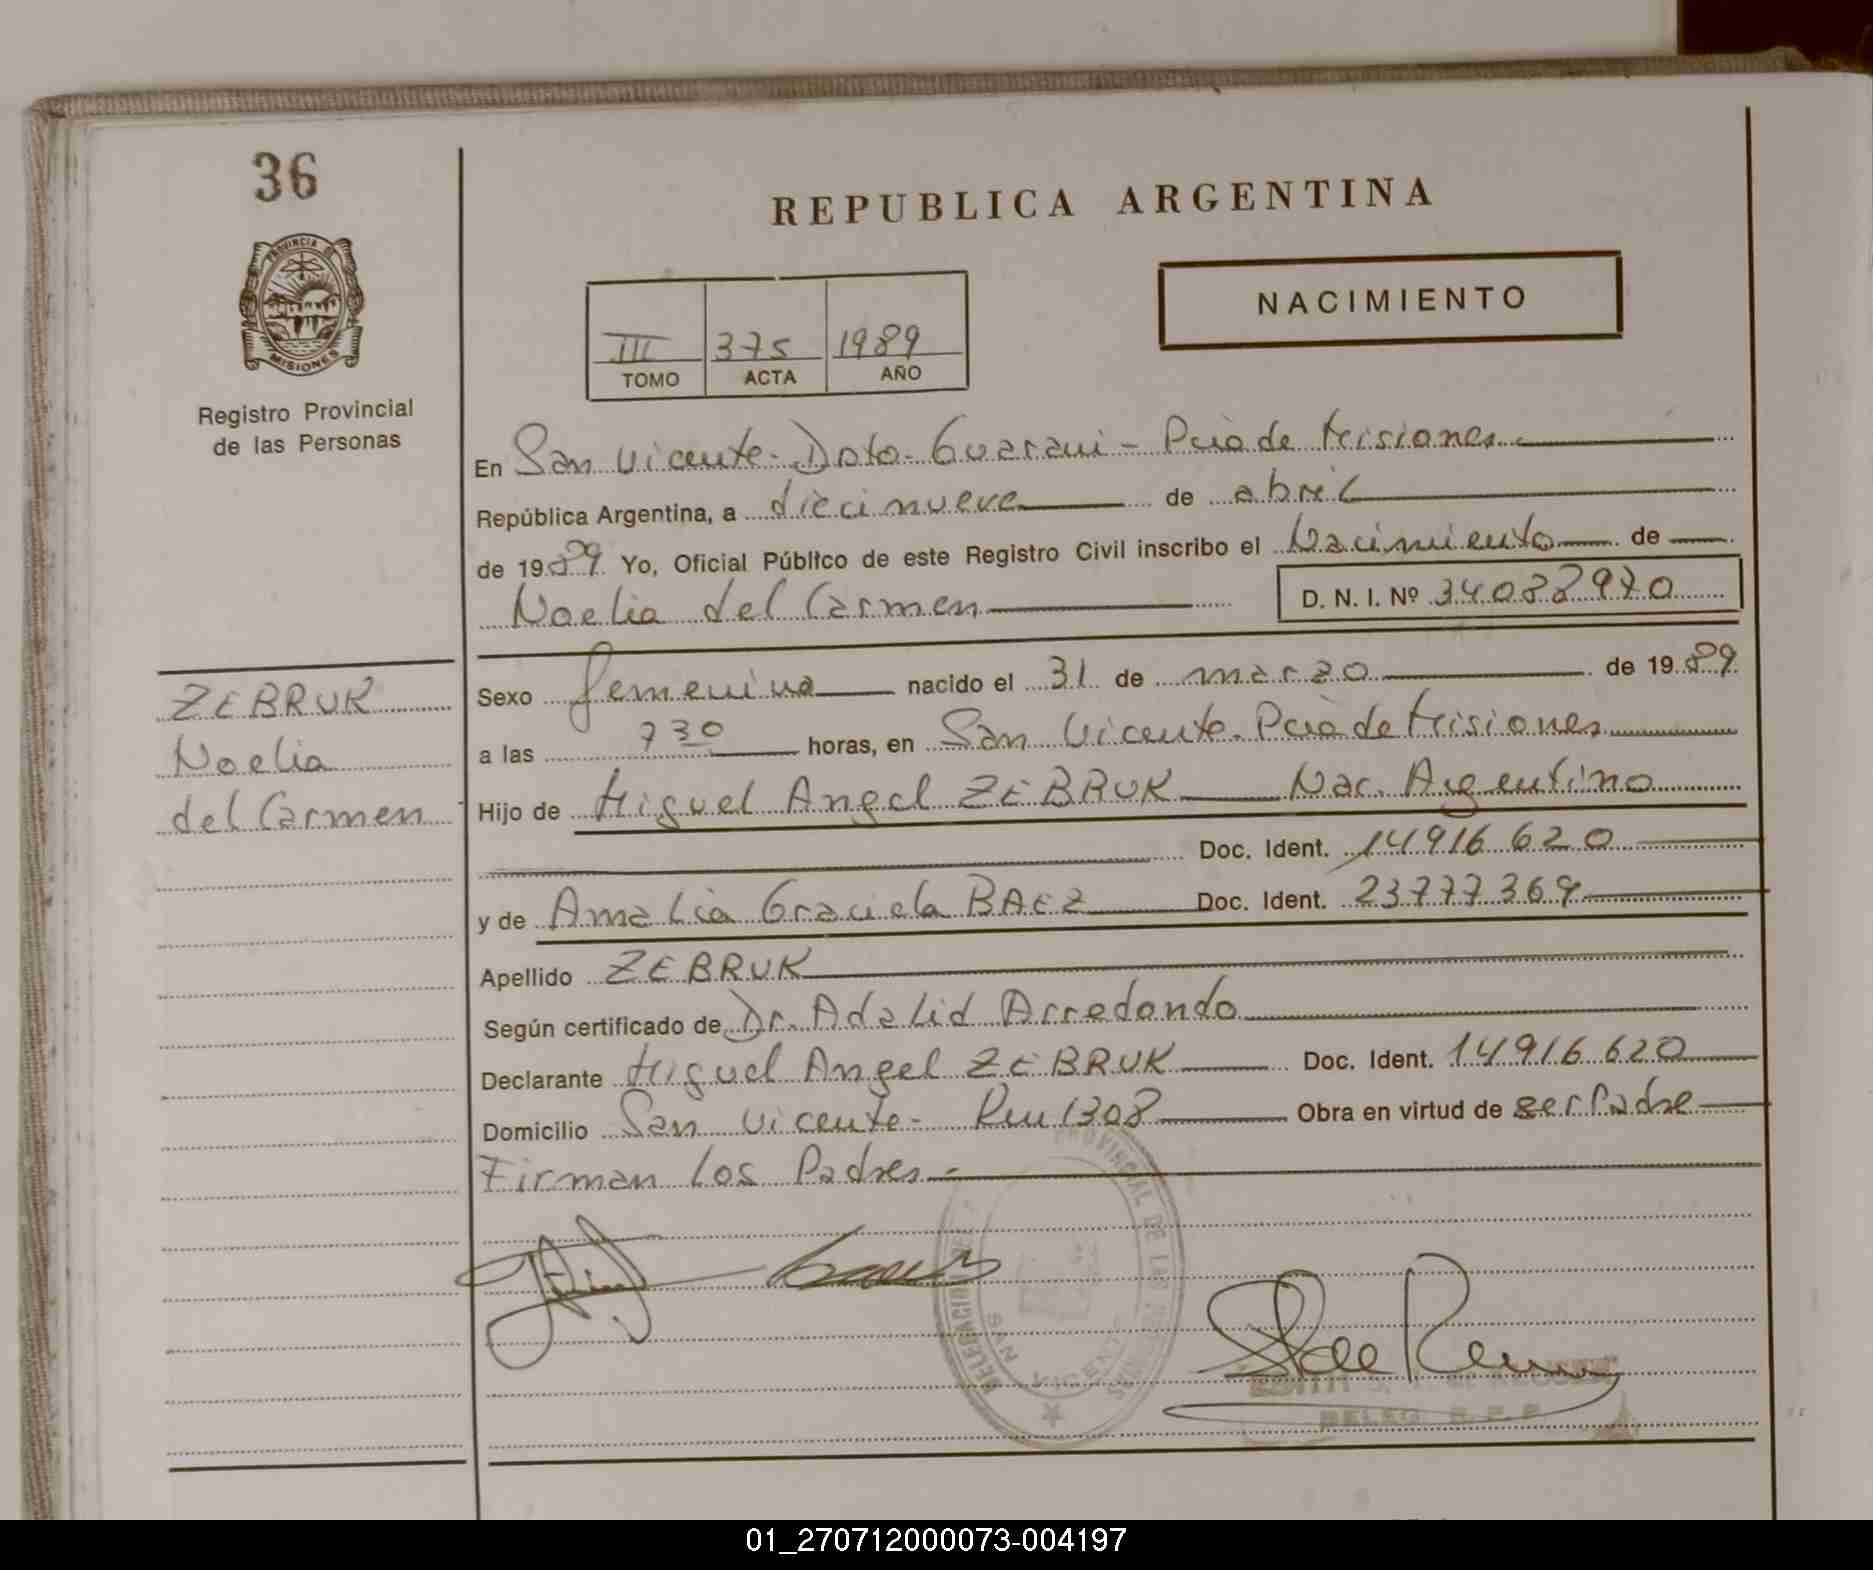 36
PROVINCIA DE
MISIONES
Registro Provincial
de las Personas
REPUBLICA ARGENTINA
NACIMIENTO
III 375 1989
TOMO ACTA AÑO
En San Vicente - Dpto. Guarani - Pcia de Misiones.
República Argentina, a diecinueve de abril
de 1989 Yo, Oficial Público de este Registro Civil inscribo el Nacimiento de
Noelia del Carmen D. N. I. Nº 34022970
ZEBRUK
Noelia
del Carmen
Sexo femenino nacido el 31 de marzo de 1989
a las 7 30 horas, en San Vicente. Pcia de Misiones
Hijo de Miguel Angel ZEBRUK Nac. Argentino
Doc. Ident. 14916620
y de Amalia Graciela BAEZ Doc. Ident. 23777369
Apellido ZEBRUK
Según certificado de Dr. Adalid Arredondo
Declarante Miguel Angel ZEBRUK Doc. Ident. 14916620
Domicilio San Vicente - Km 1308 Obra en virtud de ser Padre
Firman los Padres
DELEGACION PROVINCIAL DE LAS
SAN VICENTE
EDITH
DELEG. R.P.P.
01_270712000073-004197